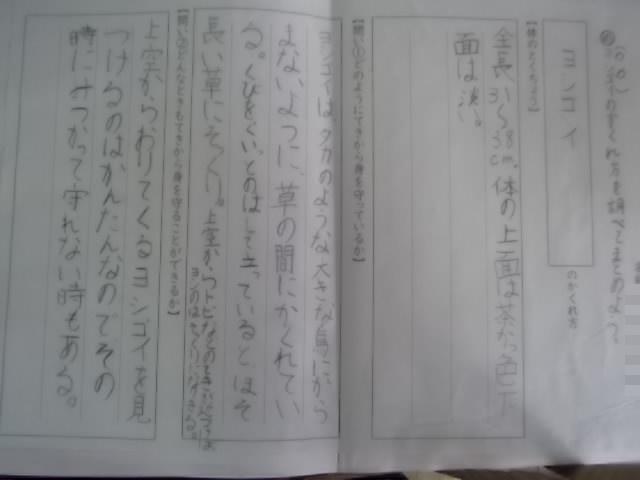 かくれ方を調べてまとめよう。
ヨシゴイ
のかくれ方
【体のとくちょう】
全長31〜38cm。体の上面は茶かっ色で下
面は淡い。
【問い①どのようにてきから身を守っているか】
ヨシゴイはタカのような大きな鳥にから
まないように、草の間にかくれてい
る。くびをぐいっとのばして立っているとほそ
長い草にそっくり。
【問い②どんなときもてきから身を守ることができるか】
上空からおりてくるヨシゴイを見
つけるのはかんたんなのでその
時に見つかって守れない時もある。